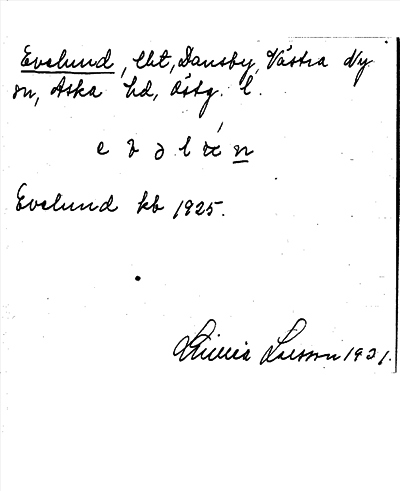 Evelund, lht, Dansby, Västra Ny
sn, Aska hd, Östg. l.
Evelund kb 1925.
Larsson 1931.